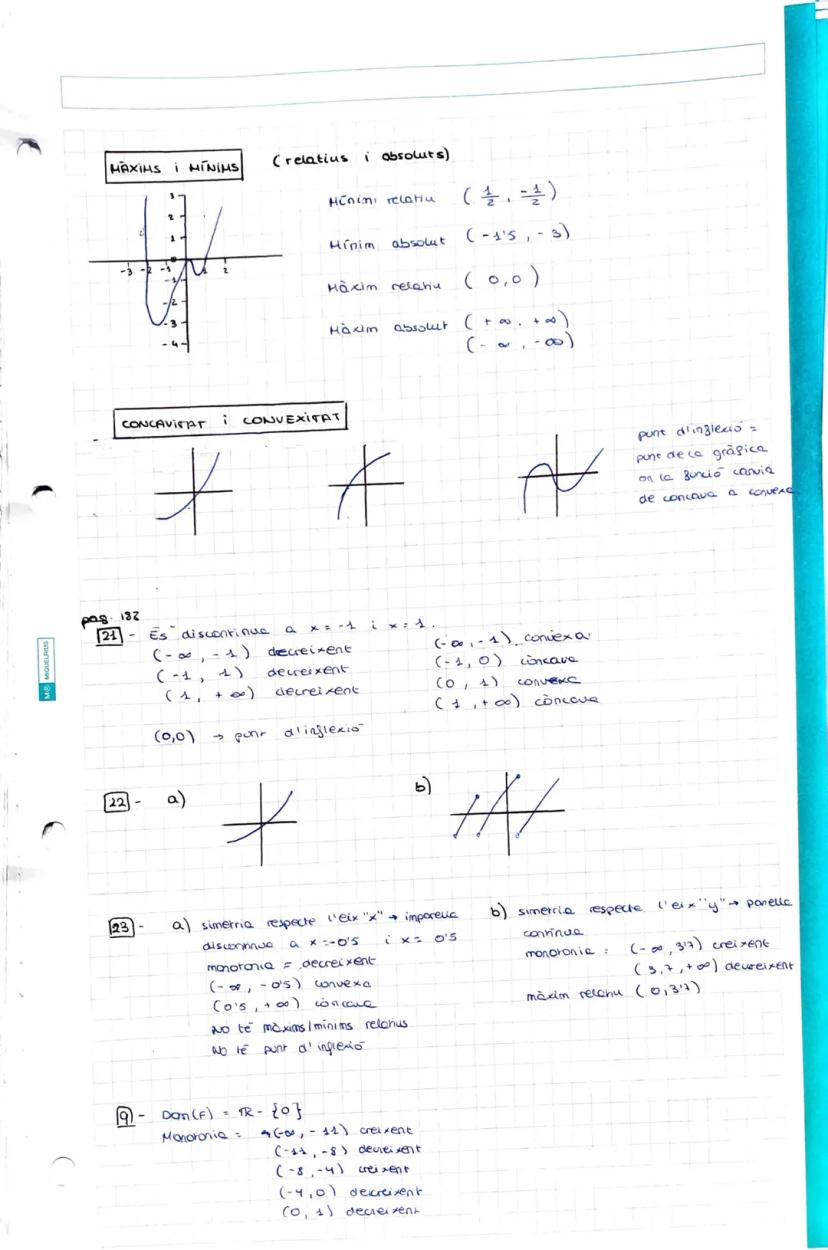 MÀXIMS i MÍNIMS (relatius i absoluts)
Mínim relatiu ( 1/2 , -1/2 )
Mínim absolut (-1'5, -3)
Màxim relatiu ( 0,0 )
Màxim absolut ( +∞, +∞)
(-∞, -∞)
3
2
1
-3 -2 -1 0 1 2
-1
-2
-3
-4
CONCAVITAT i CONVEXITAT
punt d'inflexió =
punt de la gràfica
on la funció canvia
de concava a convexa
pag. 182
21 - És discontinua a x = -1 i x = 1.
(-∞, -1) decreixent
(-1, 1) decreixent
(1, +∞) decreixent
(-∞, -1) convexa
(-1, 0) còncava
(0, 1) convexa
(1, +∞) còncava
(0,0) → punt d'inflexió
22 - a) b)
23 - a) simetria respecte l'eix "x" → imparella
discontinua a x=-0'5 i x= 0'5
monotonia = decreixent
(-∞, -0'5) convexa
(0'5, +∞) còncava
No té màxims/mínims relatius
No té punt d'inflexió
b) simetria respecte l'eix "y" → parella
contínua
monotonia: (-∞, 3'7) creixent
(3,7, +∞) decreixent
màxim relatiu (0,3'7)
9 - Dom(F) = ℝ - {0}
Monotonia = (-∞, -11) creixent
(-11, -8) decreixent
(-8, -4) creixent
(-4, 0) decreixent
(0, 1) decreixent
MIQUELRIUS